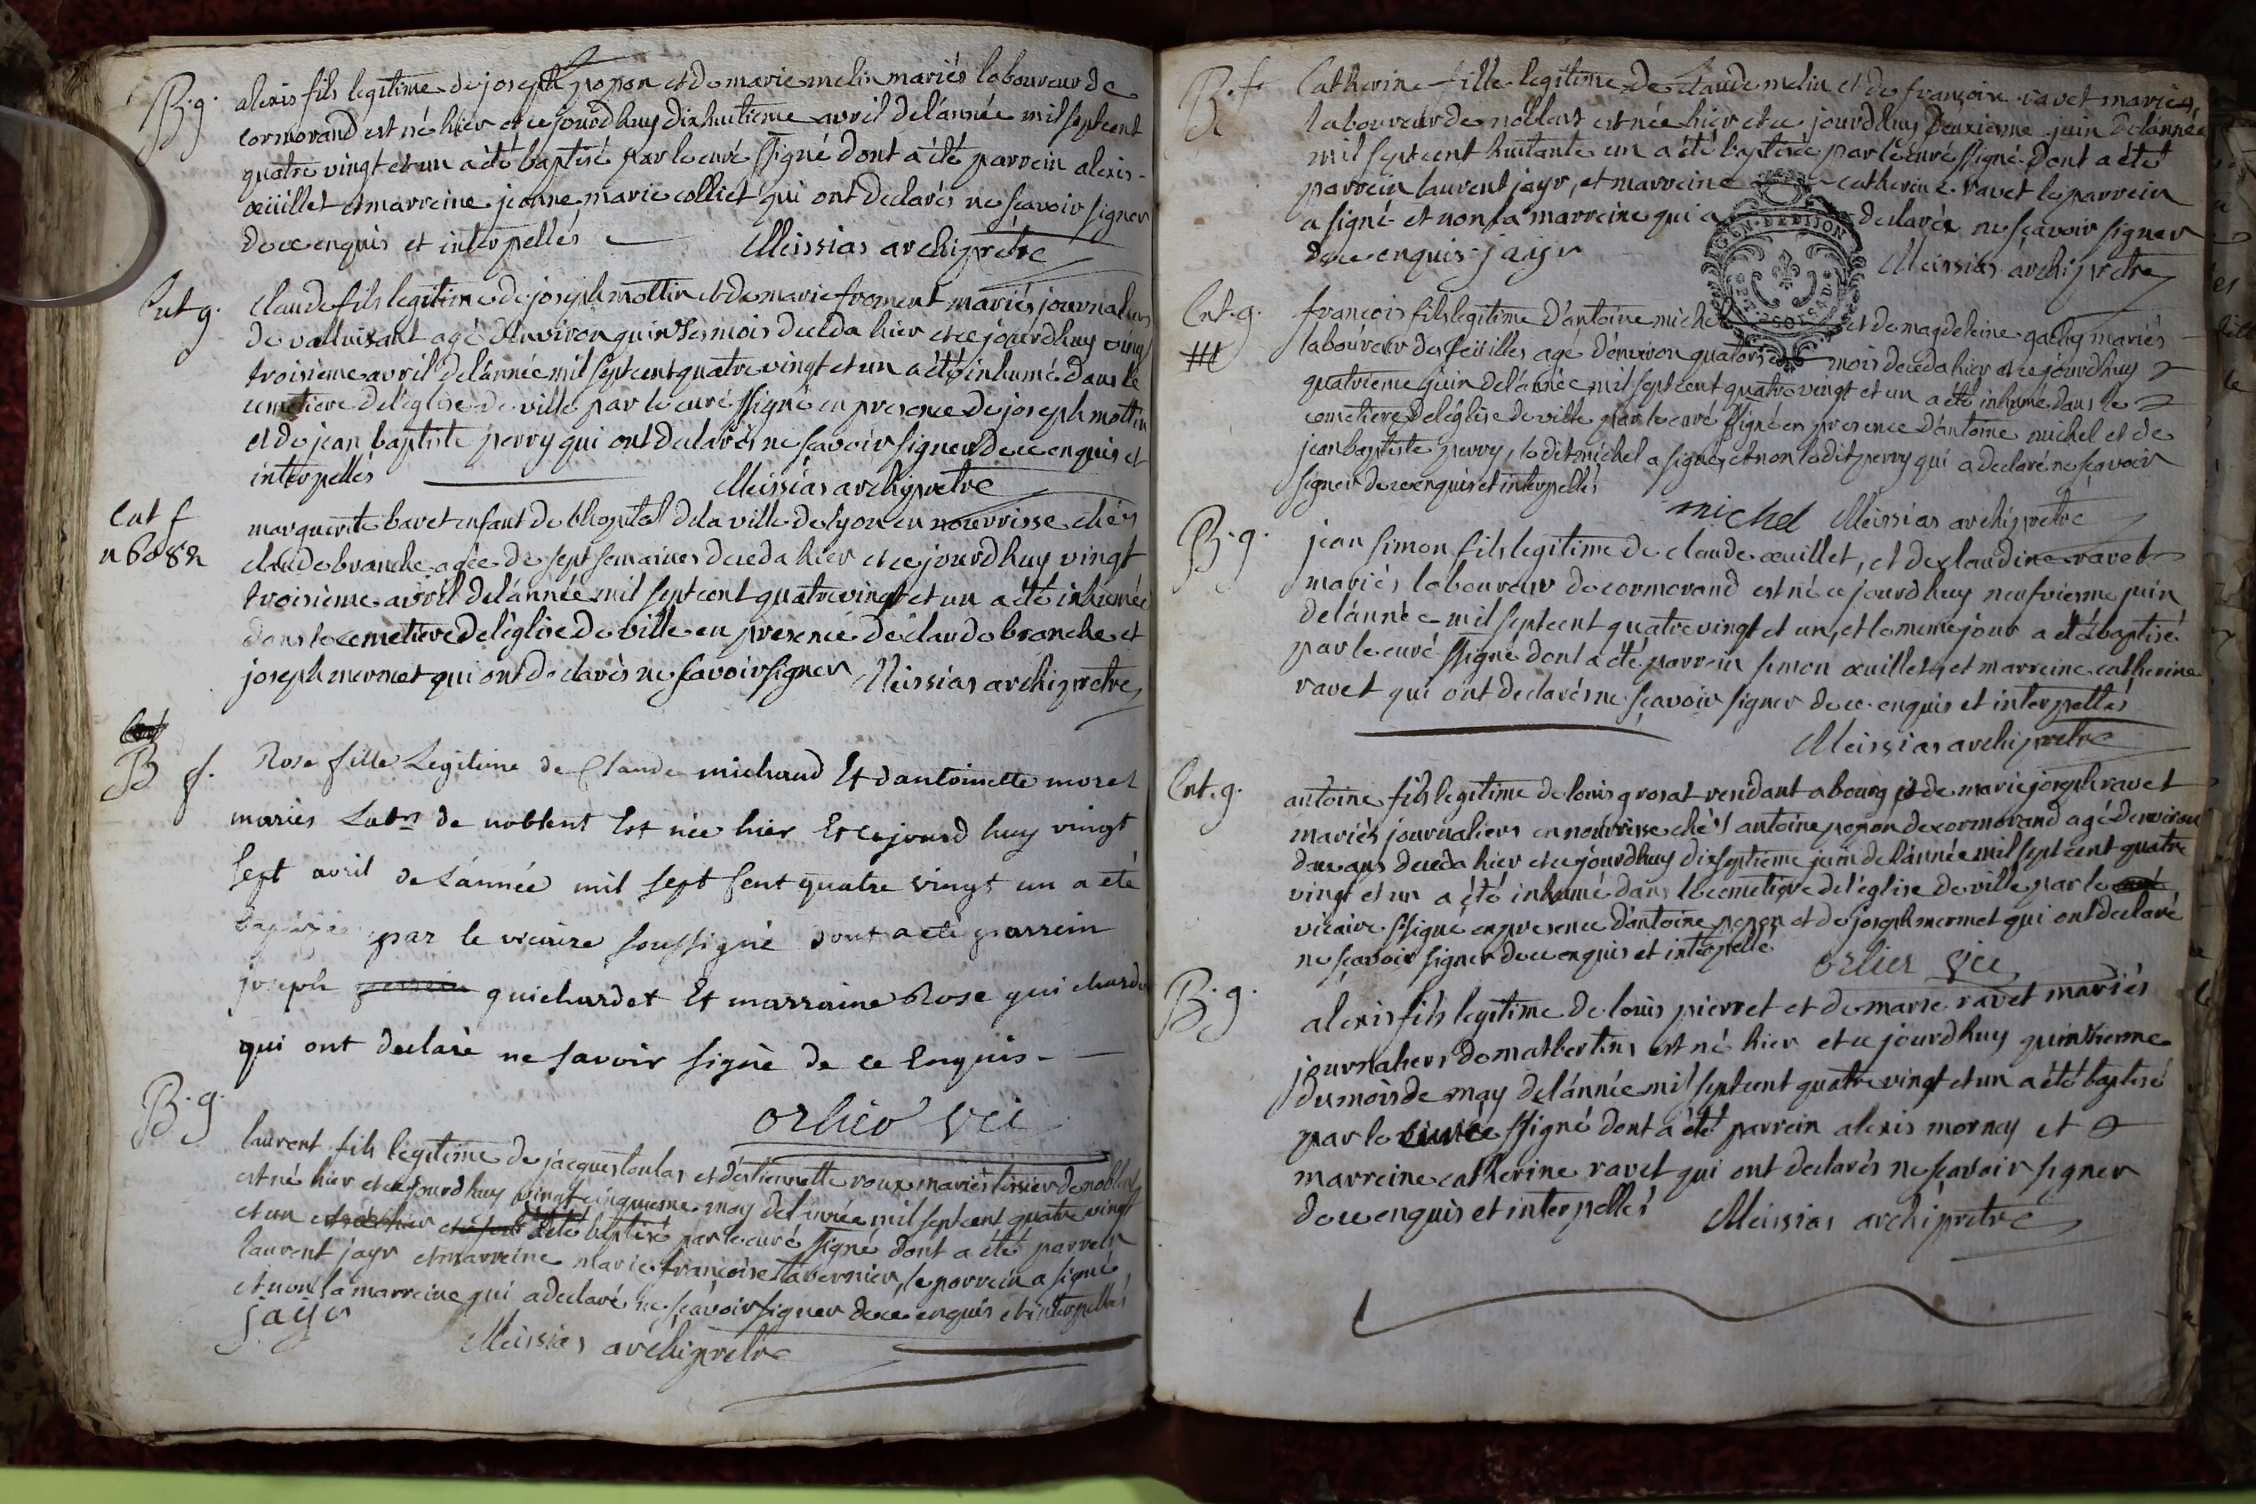 B. g.
alexis fils legitime de joseph popon et de marie melin mariés laboureur de
cormorand est né hier et ce jourdhuy dixhuitieme avril de lánnée mil sept cent
quatre vingt et un a été baptisé par le curé ssigné dont a été parrein alexis
œüillet et marreine jeanne marie colliet qui ont declarés ne sçavoir signer
de ce enquis et interpellés
Meissias archiprêtre
Ent g.
claude fils legitime de joseph mottin et de marie froment mariés journaliers
de valluisant agé d'environ quinse mois deceda hier et ce jourdhuy vingt
troisieme avril de lánnée mil sept cent quatre vingt et un a été inhumé dans le
cemetiere de l'eglise de ville par le curé ssigné en presence de joseph mottin
et de jean baptiste perry qui ont declarés ne sçavoir signer de ce enquis et
interpellés
Meissias archiprêtre
Ent f
n 6082
marguerite bavet enfant de l'hopital de la ville de lyon en nourrisse chés
claude branche agée de sept semaines deceda hier et ce jourdhuy vingt
troisieme avril de lánnée mil sept cent quatre vingt et un a été inhumée
dans le cemetiere de l'église de ville en presence de claude branche et
joseph mermet qui ont declarés ne savoir signer Meissias archiprêtre
B f.
Rose fille Legitime de Claude michaud Et dantoinette morel
mariés Labrs de noblent Est née hier Et ce jourd huy vingt
sept avril de Lánnée mil sept sent quatre vingt un a été
baptizée par le vicaire soussigné dont a eté parrein
joseph guichardet Et marraine Rose guichardet
qui ont declaré ne savoir signé de ce Enquis
orlier vci
B. g.
laurent fils legitime de jacques loulas et détiennette roux mariés tissier de noblent
est né hier et ce jourdhuy vingt cinquieme may de lánnée mil sept cent quatre vingt
et un a été baptisé par le curé ssigné dont a été parrein
laurent jayr et marreine marie françoise tavernier, le parrein a signé
et non la marreine qui a declaré ne sçavoir signer de ce enquis et interpellés
jayr
Meissias archiprêtre
B. f
Catherine fille legitime de claude melin et de françoise ravet mariés,
laboureur de noblent est née hier et ce jourdhuy deuxieme juin de lánnée
mil sept cent huitante un a été baptisée par le curé ssigné dont a été
parrein laurent jayr, et marreine catherine ravet le parrein
a signé et non la marreine qui a declarée ne sçavoir signer
de ce enquis jayr
Meissias archiprêtre
Ent. g.
françois fils legitime d'antoine michel et de magdeleine gachy mariés
laboureur des feüilles agé d'environ quatorse mois deceda hier et ce jourdhuy
quatrieme juin de lánnée mil sept cent quatre vingt et un a été inhumé dans le
cemetiere de l'église de ville par le curé ssigné en presence d'antoine michel et de
jean baptiste perry, le dit michel a signé, et non le dit perry qui a declaré ne sçavoir
signer de ce enquis et interpellés
michel Meissias archiprêtre
B. g.
jean simon fils legitime de claude œuillet, et de claudine ravet
mariés laboureur de cormorand est né ce jourdhuy neufvieme juin
de lánnée mil sept cent quatre vingt et un, et le meme jour a été baptisé
par le curé ssigné dont a été parrein simon œuillet, et marreine catherine
ravet qui ont declarés ne sçavoir signer de ce enquis et interpellés
Meissias archiprêtre
Ent. g.
antoine fils legitime de louis grosat resident a bourg et de marie joseph ravet
mariés journaliers en nourrisse chés antoine popon de cormorand agé d'environ
deux ans deceda hier et ce jourdhuy dixseptieme juin de lánnée mil sept cent quatre
vingt et un a été inhumé dans le cemetiere de l'église de ville par le
vicaire ssigné en presence d'antoine popon et de joseph mermet qui ont declaré
ne sçavoir signer de ce enquis et interpellé
orlier vci
B. g.
alexis fils legitime de louis pierret et de marie ravet mariés
journaliers de matbertins est né hier et ce jourdhuy quinsieme
du mois de may de lánnée mil sept cent quatre vingt et un a été baptisé
par le curé ssigné dont a été parrein alexis mornay et
marreine catherine ravet qui ont declarés ne sçavoir signer
de ce enquis et interpellés Meissias archiprêtre